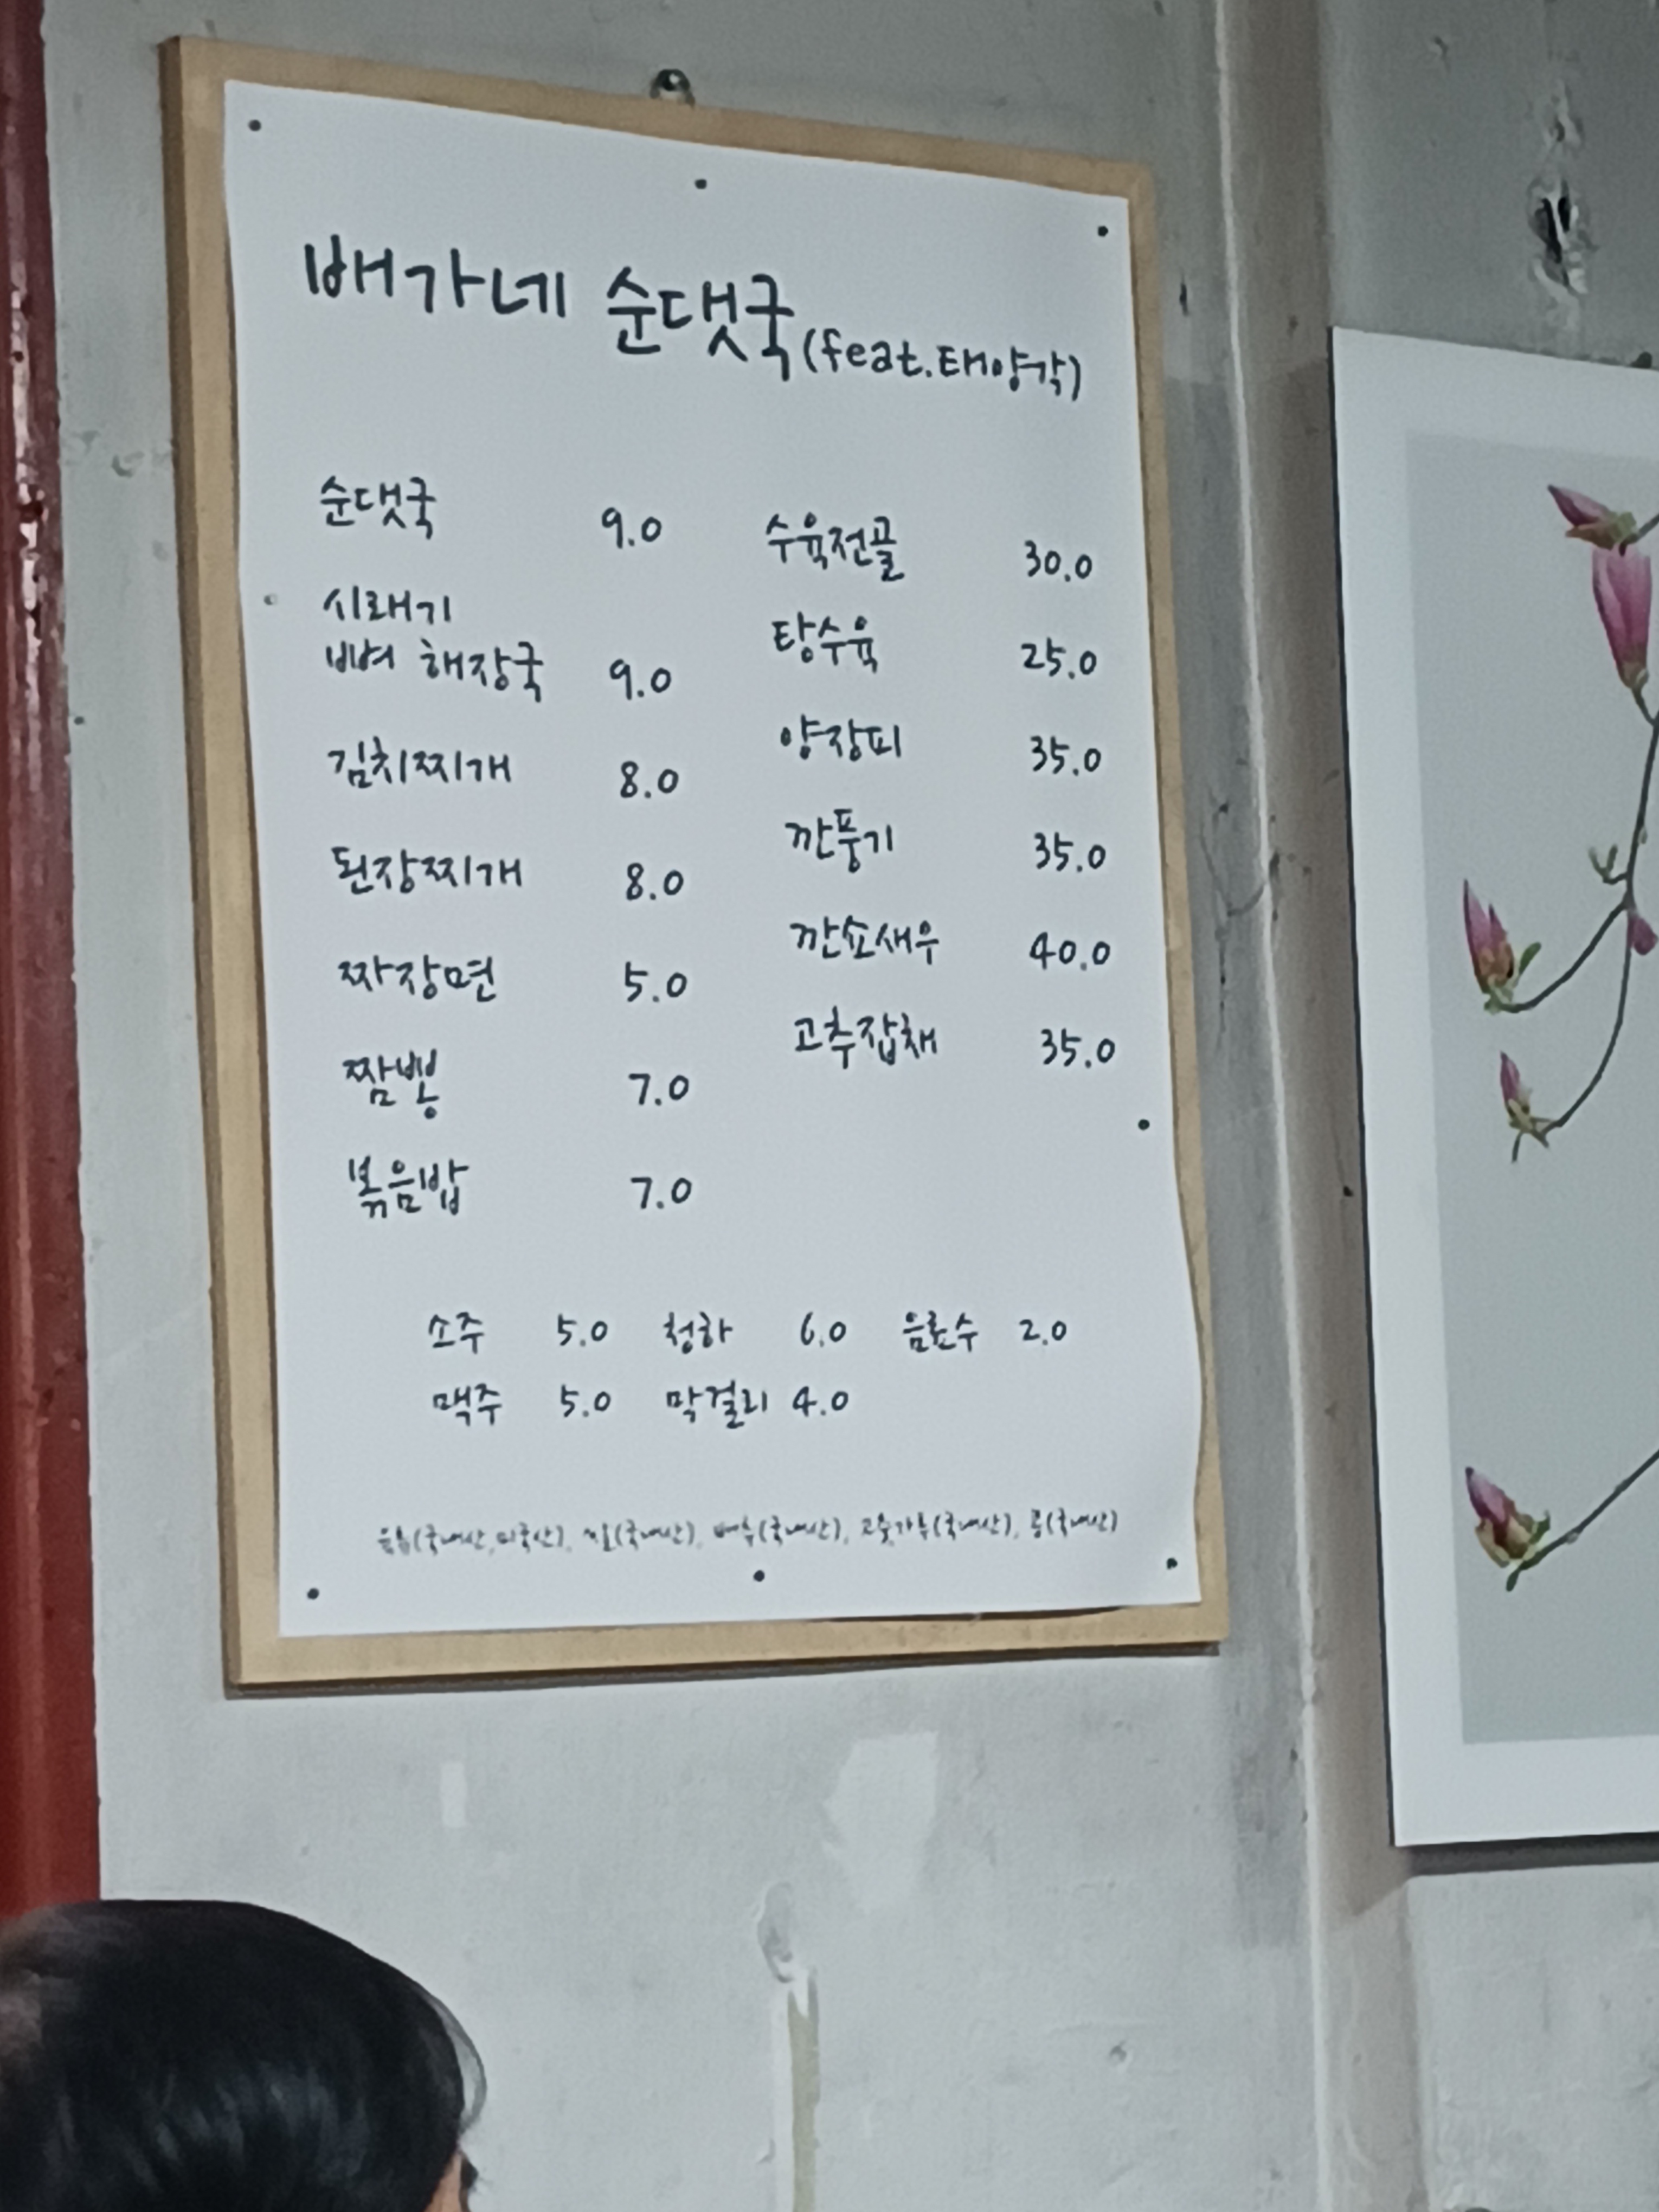 배가네 순댓국(feat.태양각)
순댓국 9.0
시래기
뼈 해장국 9.0
김치찌개 8.0
된장찌개 8.0
짜장면 5.0
짬뽕 7.0
볶음밥 7.0
수육전골 30.0
탕수육 25.0
양장피 35.0
깐풍기 35.0
깐쇼새우 40.0
고추잡채 35.0
소주 5.0 청하 6.0 음료수 2.0
맥주 5.0 막걸리 4.0
(국내산, 미국산), (국내산), 배추(국내산), 고춧가루(국내산), 콩(국내산)